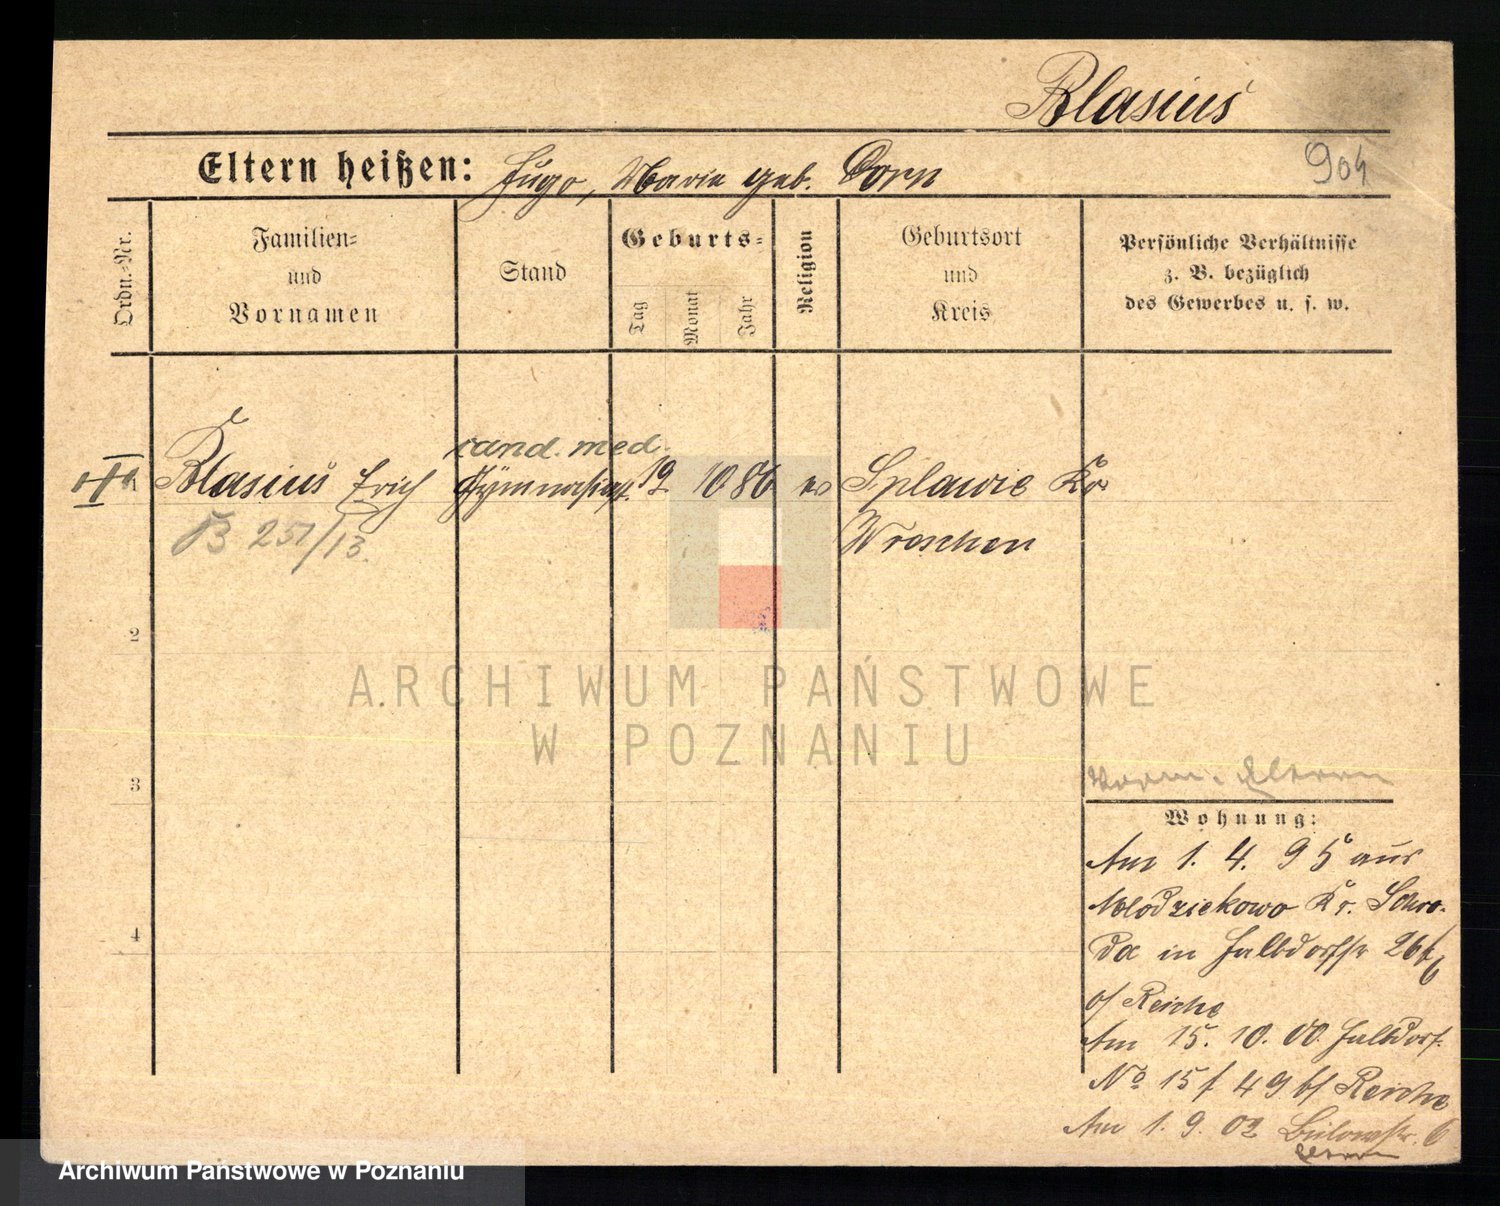 Blasius
904
Eltern heißen: Hugo, Marie geb. Dorn
Ordn.-Nr.
Familien-
und
Vornamen
Stand
Geburts-
Tag
Monat
Jahr
Religion
Geburtsort
und
Kreis
Persönliche Verhältnisse
z. B. bezüglich
des Gewerbes u. s. w.
cand. med.
1 Blasius Erich Gymnasiast 12 10 86 ev Splawie Kr
B 251/13. Wreschen
2
ARCHIWUM PAŃSTWOWE
W POZNANIU
3
Eltern
Wohnung:
Am 1. 4. 95 aus
Mlodziekowo Kr. Schro-
4
da in Halbdorfstr 26
b/ Reiche
Am 15. 10. 00 Halbdorf.
No 15 f 49 b/ Reiche
Am 1. 9. 02 Bülowstr. 6
Eltern
Archiwum Państwowe w Poznaniu